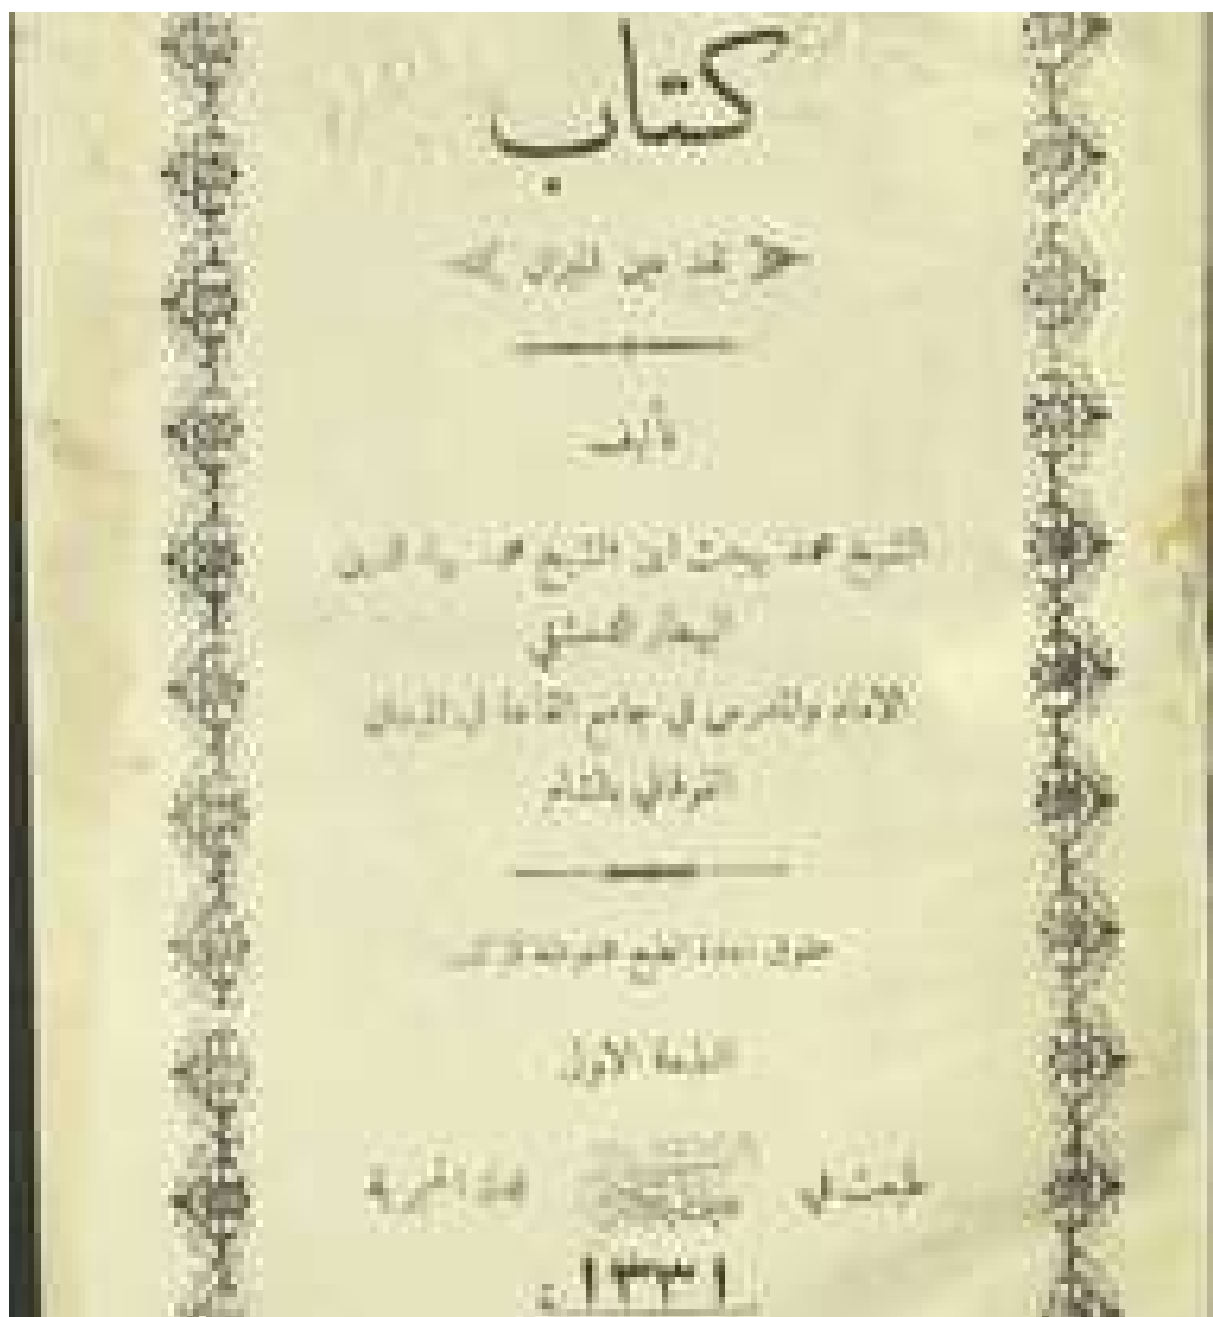 كتاب
نقد عين الميزان
تأليف
الشيخ محمد بهجت ابن الشيخ محمد بهاء الدين
البيطار الدمشقي
الامام والمدرس في جامع القاعة في الميدان
الفوقاني بالشام
حقوق اعادة الطبع محفوظة
الطبعة الاولى
طبعت في
١٣٣١